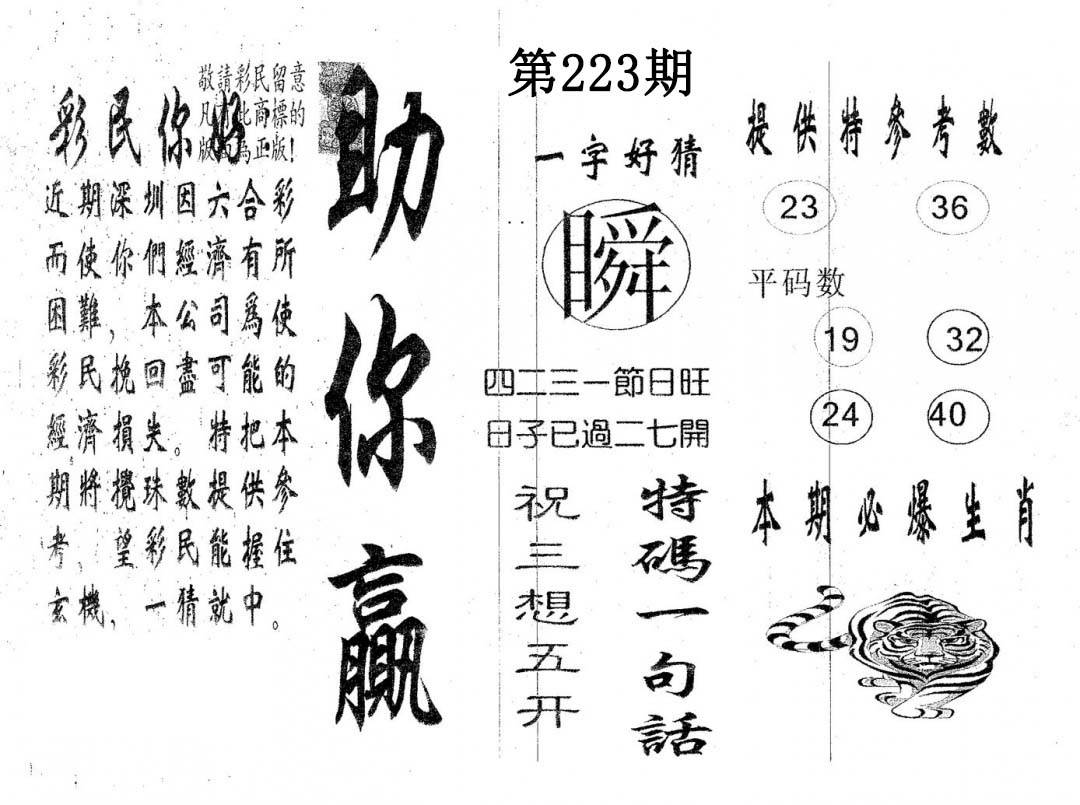 第223期
敬請彩民留意
凡 此商標的
版 為正版!
彩民你好
近期深圳因六合彩
而使你們經濟有所
困難,本公司爲使
彩民挽回盡可能的
經濟損失。特把本
期將攪珠數提供參
考,望彩民能握住
玄機,一猜就中。
助你贏
一字好猜
瞬
四二三一節日旺
日子已過二七開
特碼一句話
祝三想五开
提供特參考數
23 36
平码数
19 32
24 40
本期必爆生肖